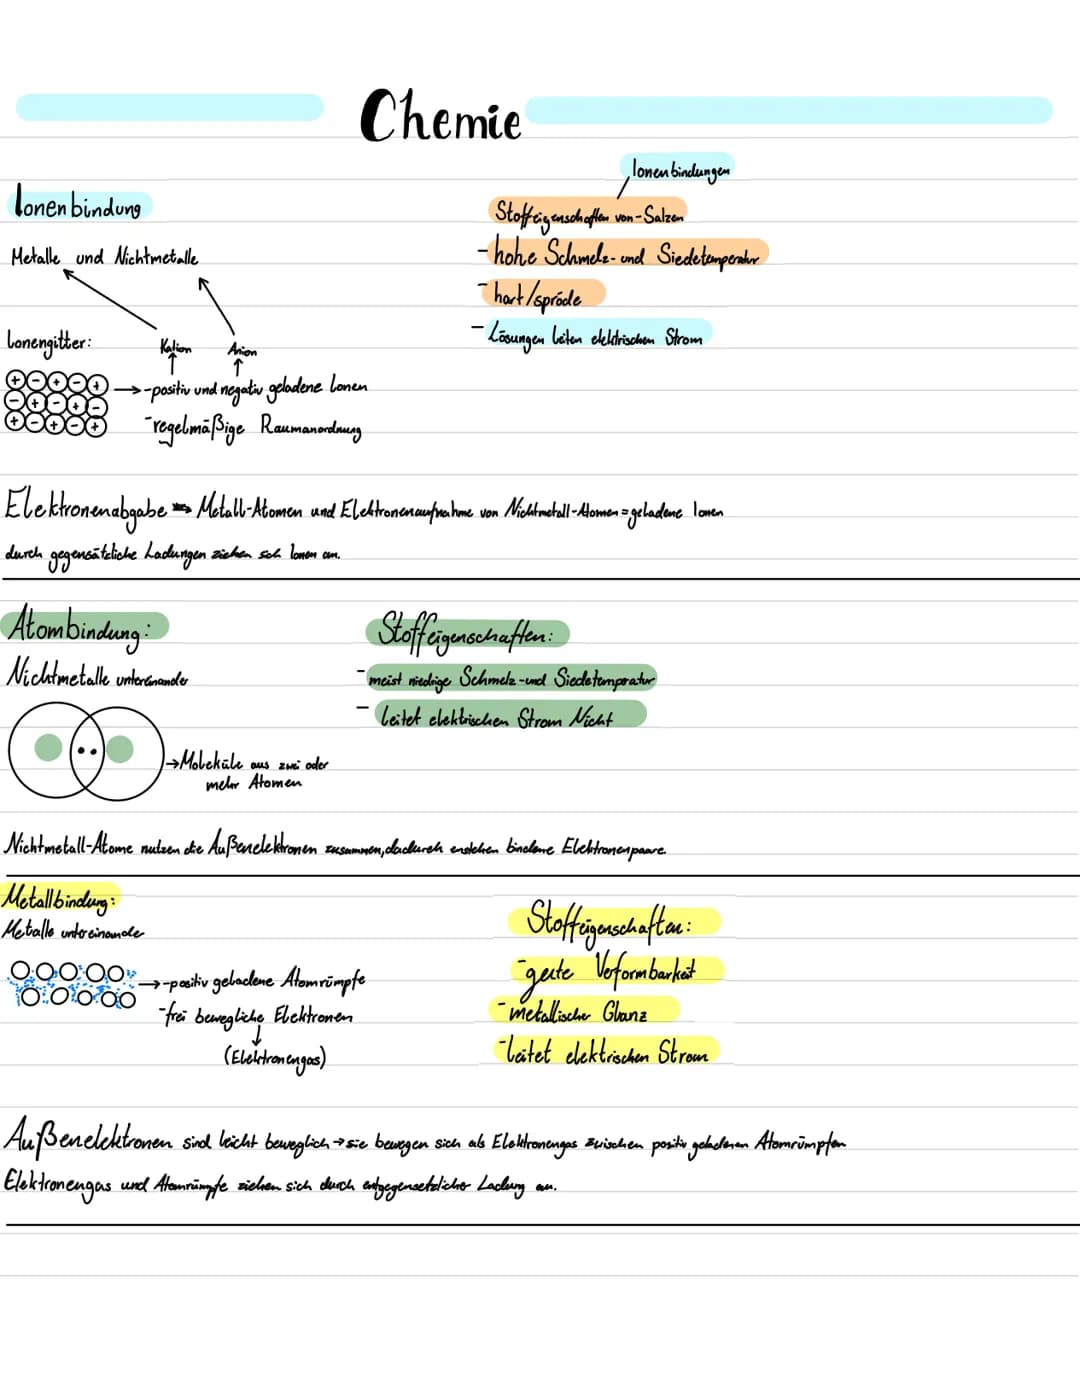 Chemie
Ionenbindung
Metalle und Nichtmetalle
Ionengitter:
Kation Anion
+ - + - +
- + - + -
+ - + - +
→ -positiv und negativ geladene Ionen
-regelmäßige Raumanordnung
Ionenbindungen
Stoffeigenschaften von Salzen
- hohe Schmelz- und Siedetemperatur
- hart/spröde
- Lösungen leiten elektrischen Strom
Elektronenabgabe → Metall-Atomen und Elektronenaufnahme von Nichtmetall-Atomen = geladene Ionen
durch gegensätzliche Ladungen ziehen sich Ionen an.
Atombindung:
Nichtmetalle untereinander
→ Moleküle aus zwei oder
mehr Atomen
Stoffeigenschaften:
- meist niedrige Schmelz- und Siedetempratur
- leitet elektrischen Strom Nicht
Nichtmetall-Atome nutzen die Außenelektronen zusammen, dadurch enstehen bindene Elektronenpaare.
Metallbindung:
Metalle untereinander
→ -positiv geladene Atomrümpfe
-frei bewegliche Elektronen
↓
(Elektronengas)
Stoffeigenschaften:
- gute Verformbarkeit
- metallischer Glanz
- leitet elektrischen Strom
Außenelektronen sind leicht beweglich → sie bewegen sich als Elektronengas zwischen positiv geladenen Atomrümpfen
Elektronengas und Atomrümpfe ziehen sich durch entgegensetzlicher Ladung an.